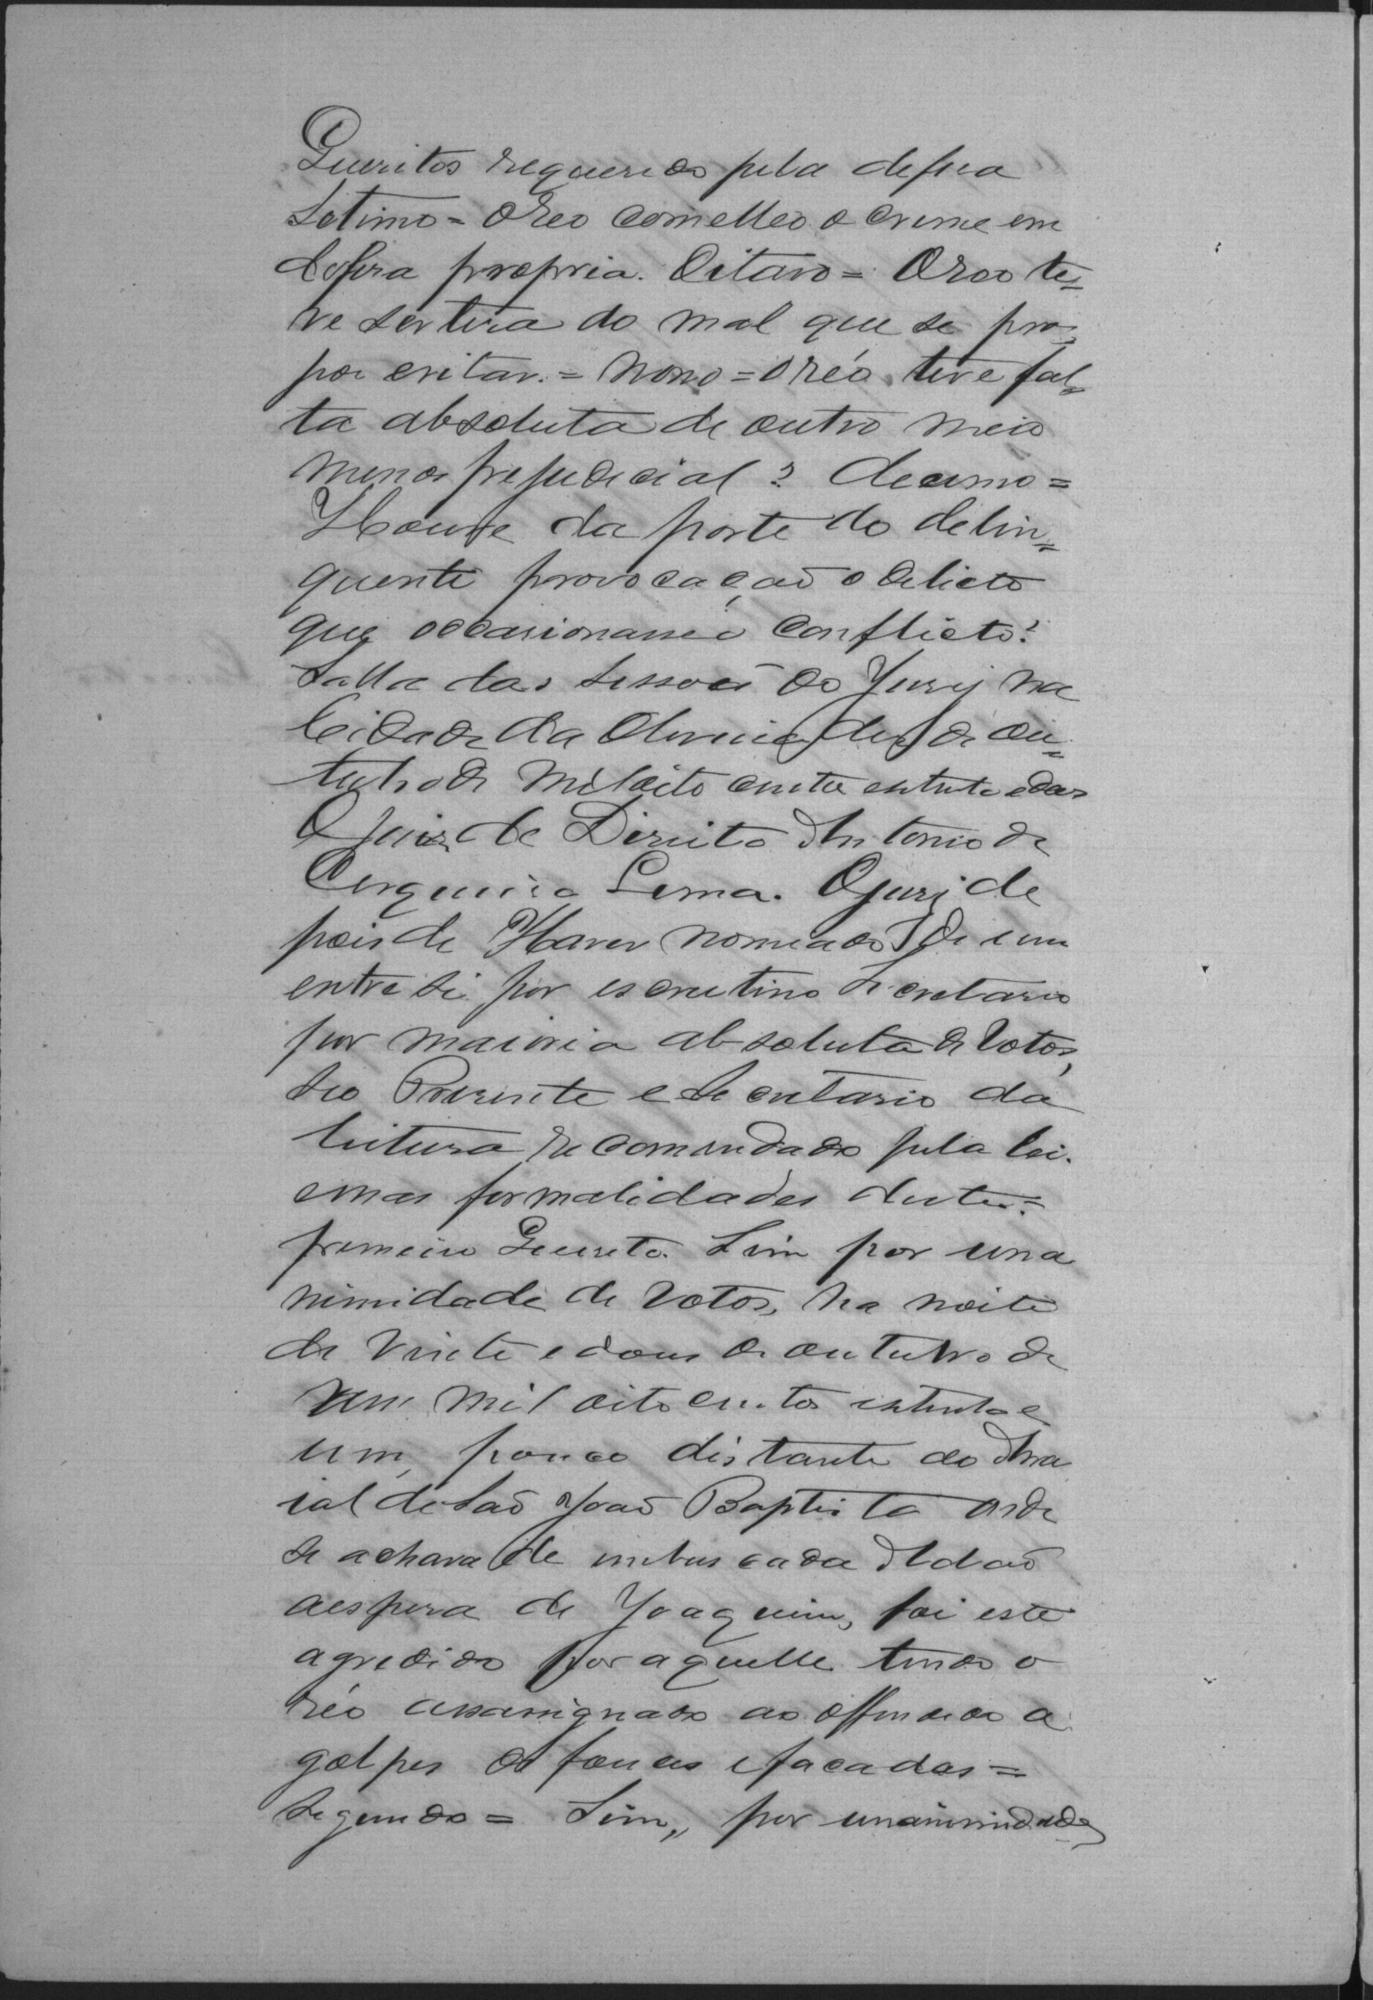 Queritos requerido pela defesa
Setimo = O Reo cometteo o crime em
defesa propria. Oitavo = O Reo te=
ve serteza do mal que se pro=
poz evitar. = Nono = O réo teve fal=
ta absoluta de outro meio
menos prejudicial? Decimo =
Houve da parte do delin=
quente provocação o delicto
que occasionasse o conflicto?
Salla das Sessoes do Jury na
Cidade da Oliveira dez de Ou=
tubro de mil oito centos estenta e dous
O Juiz de Direito Antonio de
Cerqueira Lima. O jury de
pois de Haver nomeado de um
entre si por escrutino Secretario
por maioria absoluta de Votos,
seo Presidente e Secretario da
leitura recomendado pela lei.
e mas formalidades desta =
primeiro Quesito. Sim por una
nimidade de Votos, na noite
de Vinte e dous de outubro de
um mil oito centos estenta e
um, pouco distante do Arra
ial de São João Baptista onde
se achava de imbuscada Adão
a espera de Joaquim, foi este
agredido por aquelle tendo o
réo assassignado ao offendido a
golpes de fouces e facadas =
Segundo = Sim, por unanimidade